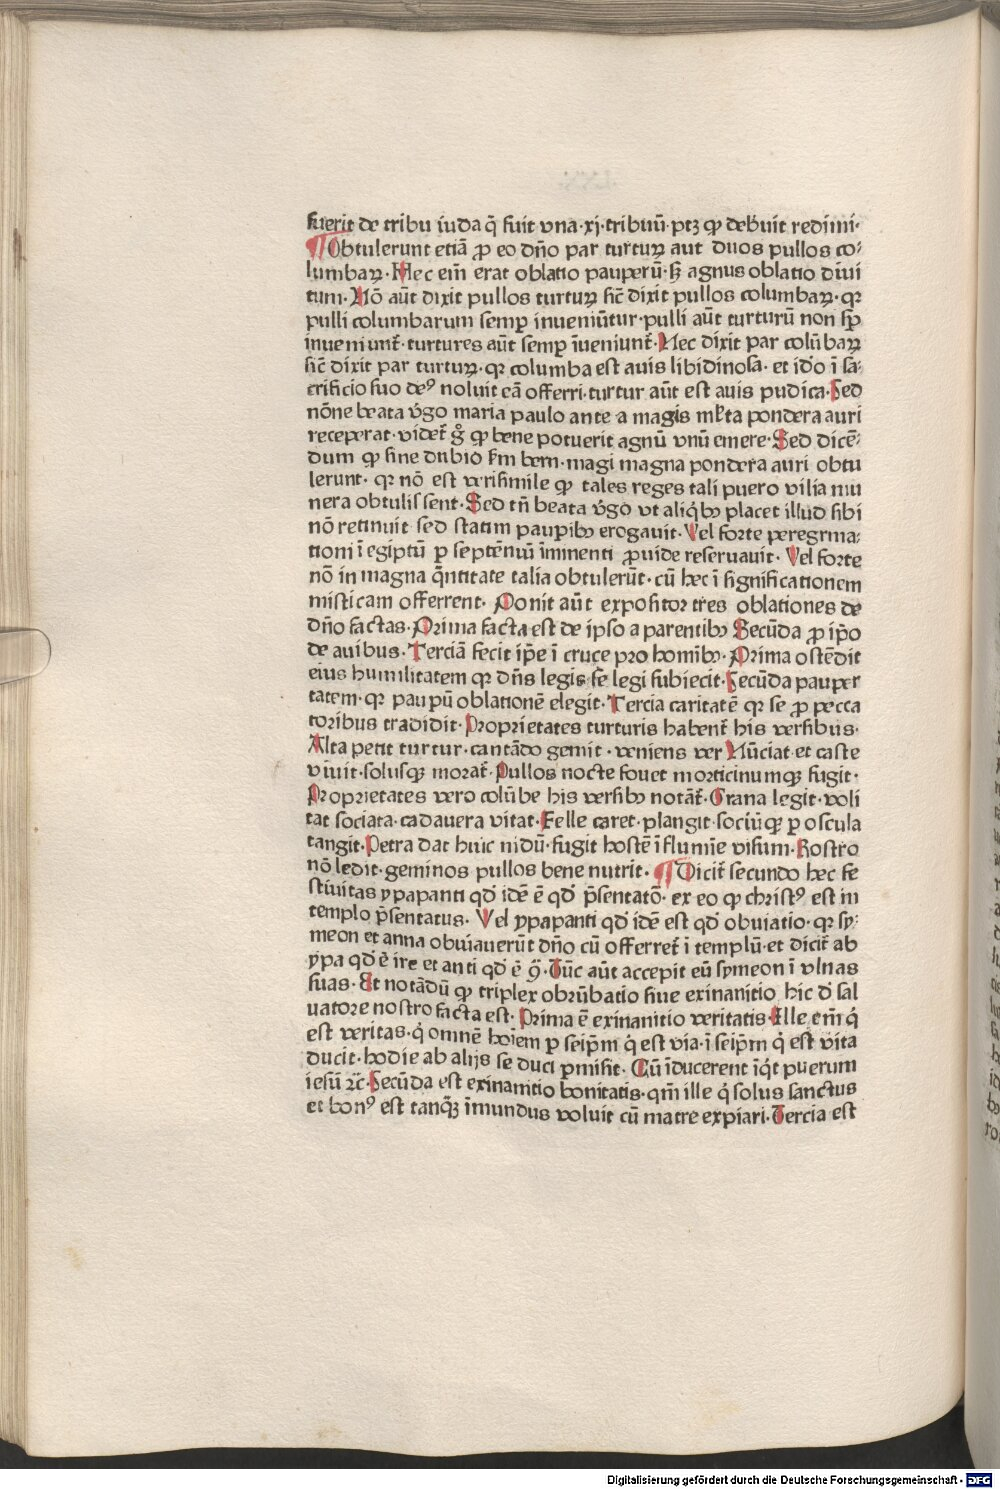 fuerit de tribu iuda q̄ fuit vna·xj·tribuū·ptꝫ ꝙ debuit redimi·
¶Obtulerunt etiā ꝓ eo dn̄o par turturꝝ aut duos pullos co⸗
lumbaꝝ·Hec em̄ erat oblatio pauperū·sꝫ agnus oblatio diui
tum·Nō aūt dixit pullos turturꝝ sic̄ dixit pullos columbaꝝ·qꝛ
pulli columbarum semꝑ inueniūtur·pulli aūt turturū non sꝑ
inueniunt᷑·turtures aūt semꝑ īueniunt᷑·Nec dixit par colūbaꝝ
sic̄ dixit par turturꝝ·qꝛ columba est auis libidinosa·et ido̓ ī sa⸗
crificio suo deꝰ noluit eā offerri·turtur aūt est auis pudica·Sed
nōne beata v̓go maria paulo ante a magis ml̓ta pondera auri
receperat·videt᷑ gͦ ꝙ bene potuerit agnū vnū emere·Sed dicē⸗
dum ꝙ sine dubio sm̄ bern·magi magna pondera auri obtu
lerunt·qꝛ nō est verisimile ꝙ tales reges tali puero vilia mu
nera obtulissent·Sed tn̄ beata v̓go vt aliqͥbꝫ placet illud sibi
nō retinuit sed statim paupibꝫ erogauit·Vel forte peregrina⸗
tioni ī egiptū ꝑ septēniū īminenti ꝓuide reseruauit·Vel forte
nō in magna q̄ntitate talia obtulerūt·cū hec ī significationem
misticam offerrent·Ponit aūt expositor tres oblationes de
dn̄o factas·Prima facta est de ipso a parentibꝫ Secūda ꝓ ip̄o
de auibus·Terciā fecit ip̄e ī cruce pro homībꝫ·Prima ostēdit
eius humilitatem qꝛ dn̄s legis se legi subiecit·Secūda pauper
tatem·qꝛ paupū oblationē elegit·Tercia caritatē qꝛ se ꝓ pecca
toribus tradidit·Proprietates turturis habent᷑ his versibus·
Alta petit turtur·cantādo gemit·veniens ver Nūciat·et caste
viuit·solusqꝫ morat᷑·Pullos nocte fouet morticinumqꝫ fugit·
Proprietates vero colūbe his versibꝫ notāt᷑·Grana legit·voli
tat sociata·cadauera vitat·Felle caret·plangit sociūqꝫ ꝑ oscula
tangit·Petra dat huic nidū·fugit hostē ī flumīe visum·Rostro
nō ledit·geminos pullos bene nutrit·¶Dicit᷑ secundo hec fe
stiuitas ypapanti qd̓ idē ē qd̓ p̄sentatō·ex eo ꝙ christꝰ est in
templo p̄sentatus·Vel ypapanti qd̓ idē est qd̓ obuiatio·qꝛ sy⸗
meon et anna obuiauerūt dn̄o cū offerret᷑ ī templū·et dicit᷑ ab
ypa qd̓ ē ire et anti qd̓ ē ꝯ̄·Tūc aūt accepit eū symeon ī vlnas
suas·Et notādū ꝙ triplex obrūbatio siue exinanitio hic d̓ sal
uatore nostro facta est·Prima ē exinanitio veritatis·Ille em̄ qͥ
est veritas·qͥ omnē hoīem ꝑ seip̄m qͥ est via·ī seip̄m qͥ est vita
ducit·hodie ab alijs se duci ꝑmisit·Cū īducerent īqͥt puerum
iesū ⁊c̄·Secūda est exinanitio bonitatis·qm̄ ille qͥ solus sanctus
et bonꝰ est tanqꝫ̄ īmundus voluit cū matre expiari·Tercia est
Digitalisierung gefördert durch die Deutsche Forschungsgemeinschaft · DFG